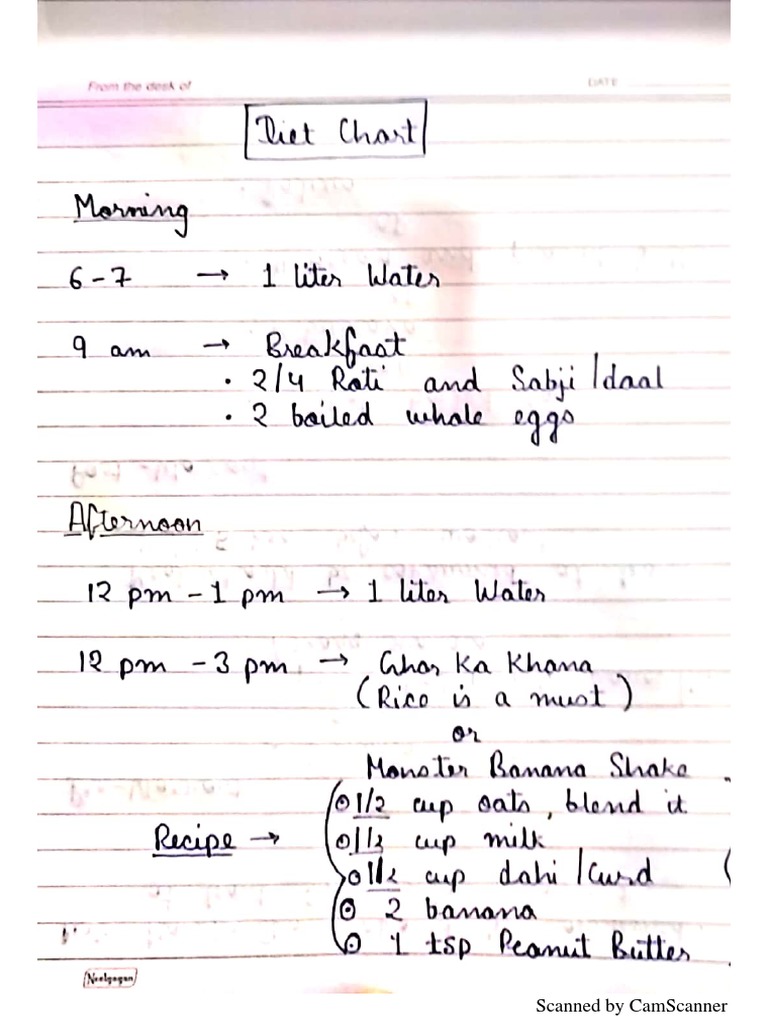 From the desk of
DATE
Diet Chart
Morning
6-7 → 1 liter Water
9 am → Breakfast
• 2/4 Roti and Sabji/daal
• 2 boiled whole eggs
Afternoon
12 pm - 1 pm → 1 liter Water
12 pm - 3 pm → Ghar Ka Khana
(Rice is a must)
or
Monster Banana Shake
1/2 cup oats, blend it
Recipe → 1/2 cup milk
1/2 cup dahi/Curd
2 banana
1 tsp Peanut Butter
Neelgagan
Scanned by CamScanner